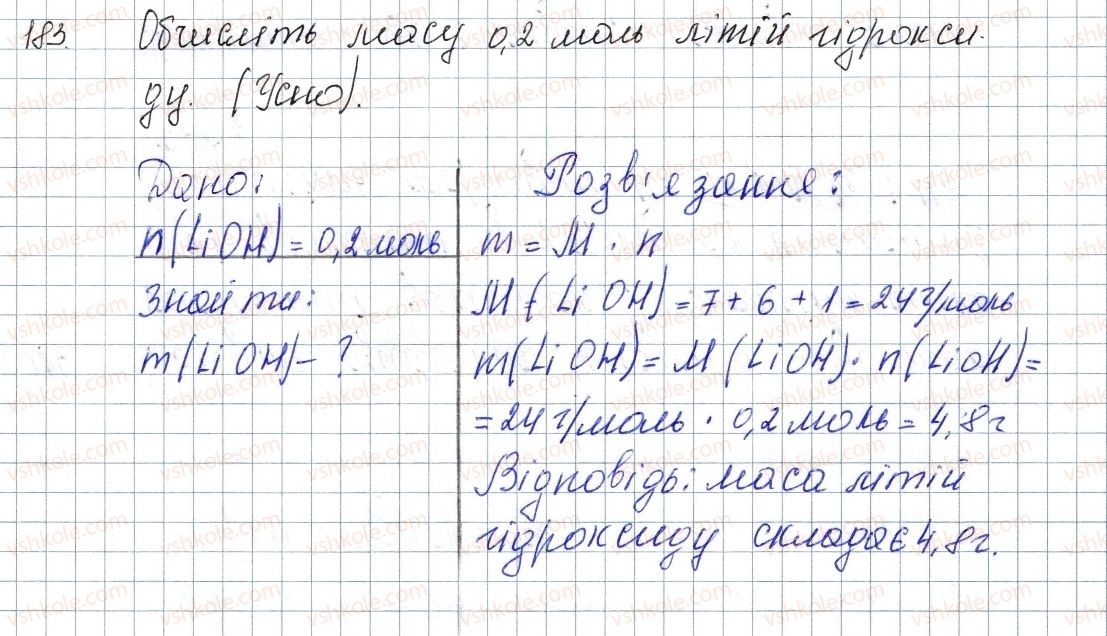 183. Обчисліть масу 0,2 моль літій гідрокси-
ду. (Усно).
Дано:
n(LiOH) = 0,2 моль
Знайти:
m(LiOH) – ?
Розв'язання:
m = M · n
M(LiOH) = 7 + 6 + 1 = 24 г/моль
m(LiOH) = M(LiOH) · n(LiOH) =
= 24 г/моль · 0,2 моль = 4,8 г
Відповідь: маса літій
гідроксиду складає 4,8 г.